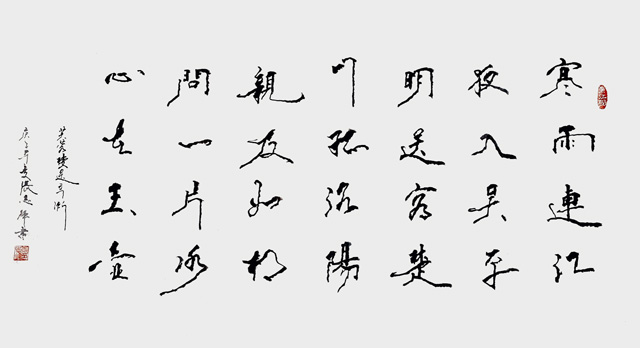 寒雨連江
夜入吴平
明送客楚
山孤洛陽
親友如相
問一片冰
心在玉壺
芙蓉樓送辛漸